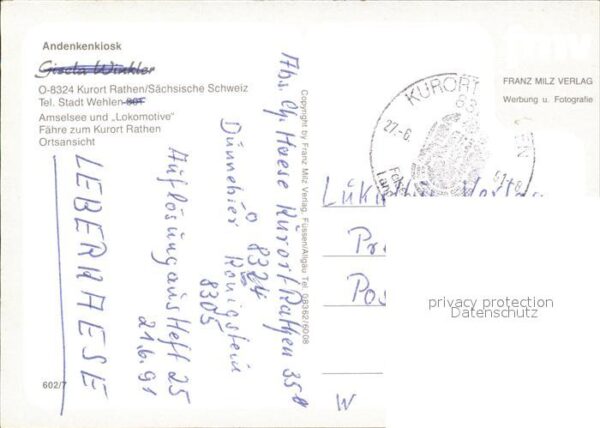 Andenkenkiosk
Gisela Winkler
O-8324 Kurort Rathen/Sächsische Schweiz
Tel. Stadt Wehlen 801
Amselsee und „Lokomotive“
Fähre zum Kurort Rathen
Ortsansicht
602/7
LEBERKAESE
Auflösung aus Heft 25
21.6.91
Dünnebier Königstein
8305
Abs. Ch. Haese Kurort/Rathen 35
O 8324
Copyright by Franz Milz Verlag, Füssen/Allgäu Tel. 08362/6008
KURORT
83
27-6
FRANZ MILZ VERLAG
Werbung u. Fotografie
Pr
Pos
W
privacy protection
Datenschutz